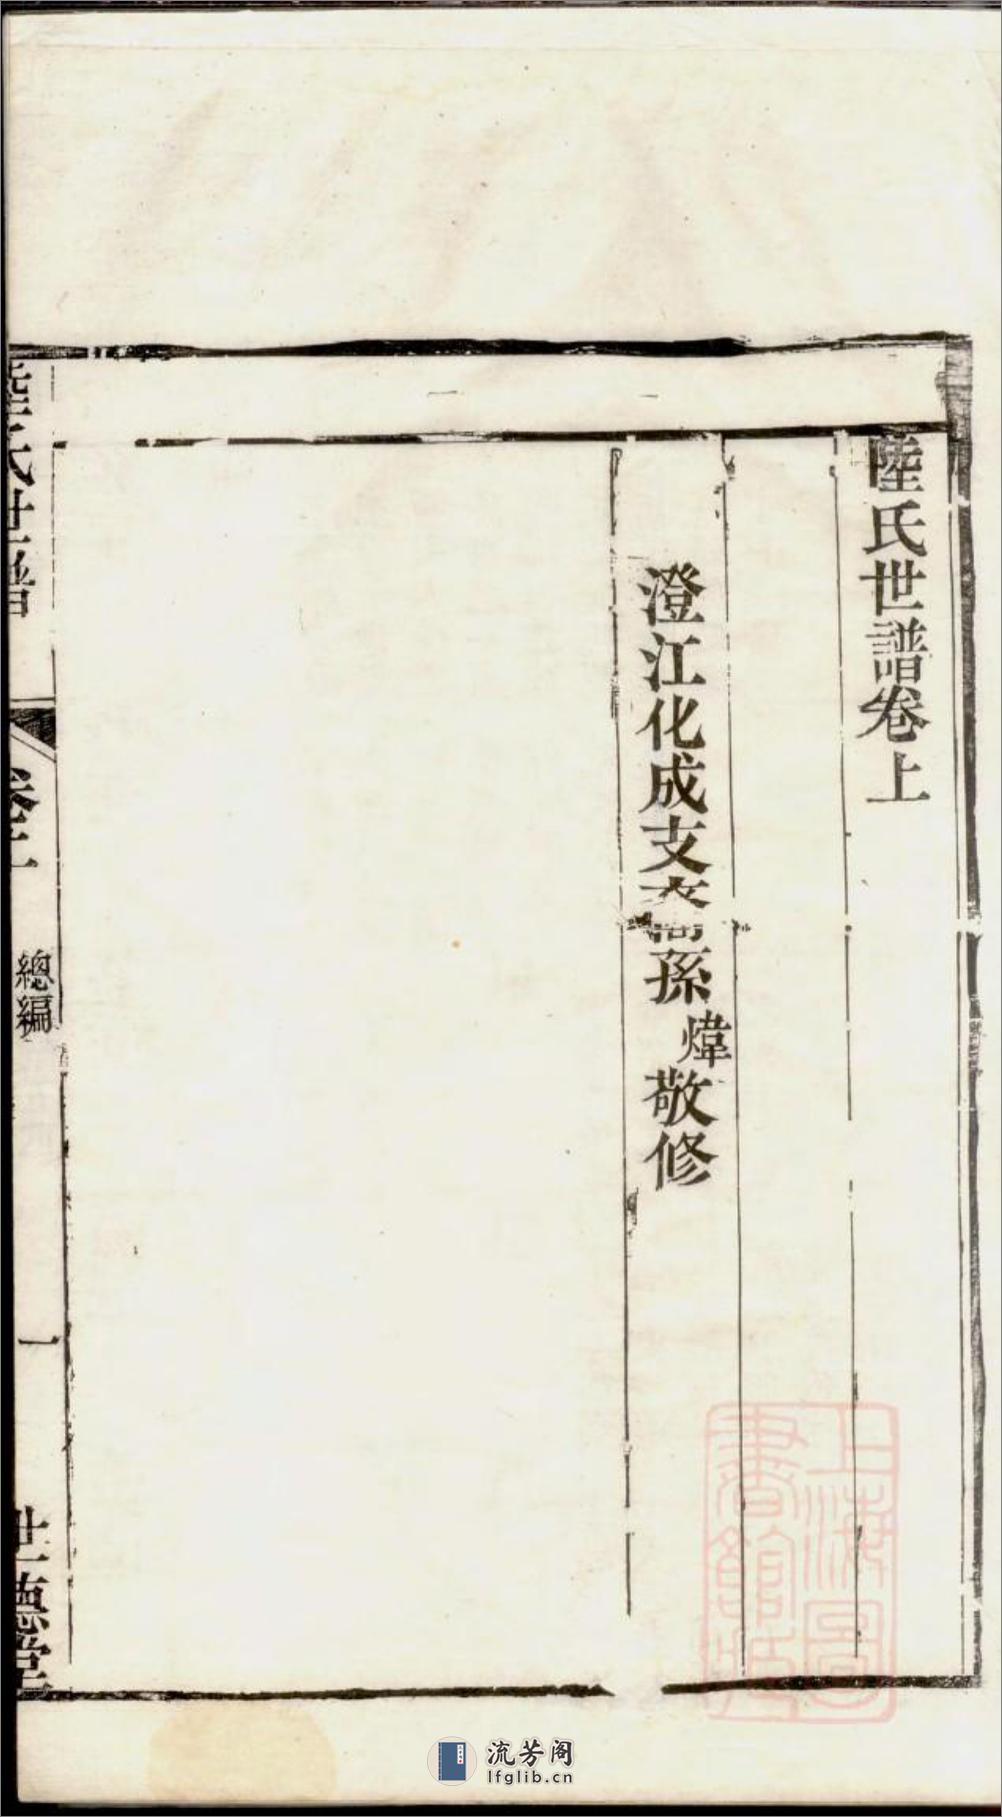 陸氏世譜卷上
澄江化成支裔孫煒敬修
陸氏世譜
卷上
總編
一
世德堂
上海圖書館藏
流芳阁
lfglib.cn